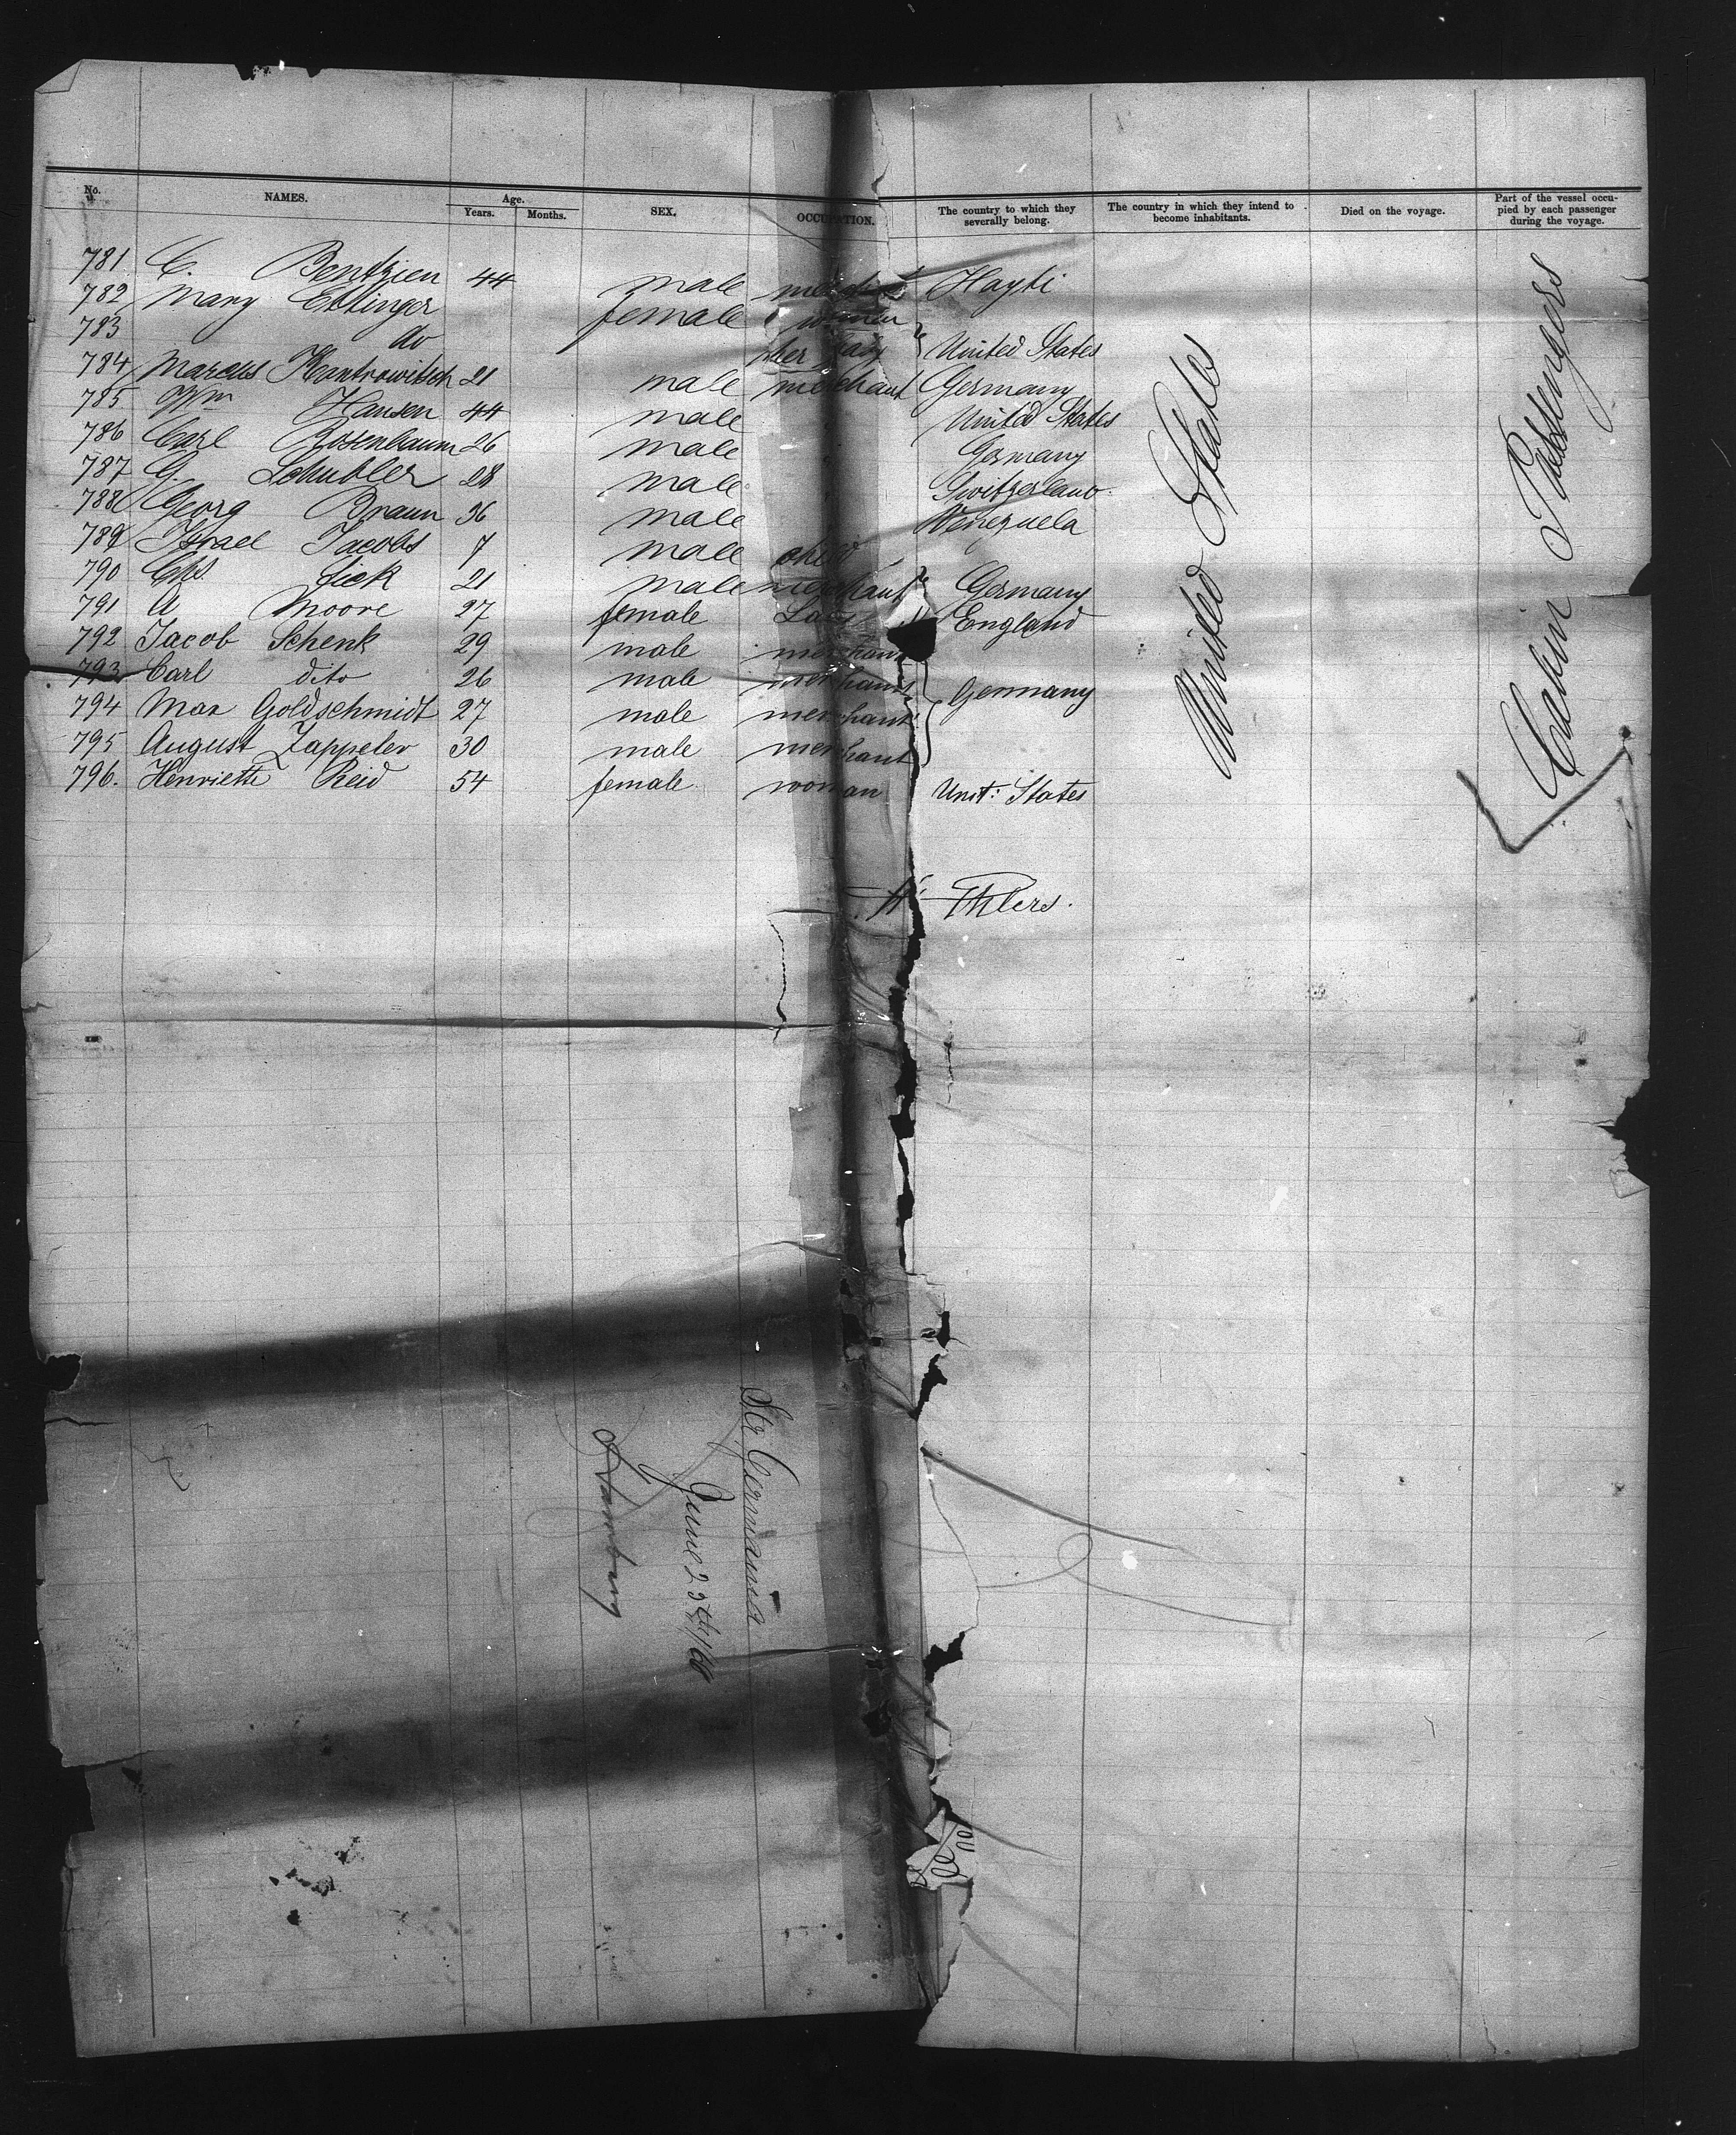 No. NAMES. Age. Years. Months. SEX. OCCUPATION. The country to which they severally belong. The country in which they intend to become inhabitants. Died on the voyage. Part of the vessel occupied by each passenger during the voyage.
781 C. Bentzien 44 male Hayti
782 Mary Ettinger female women
783 do her Lady United States
784 Marcus Kantrowitsch 21 male merchant Germany
785 Wm Hansen 44 male " United States
786 Carl Rosenbaum 26 male " Germany
787 G. Schubler 28 male " Switzerland.
788 Georg Braun 36 male " Venezuela
789 Israel Jacobs 7 male child
790 Chs. Sick 21 male merchant Germany
791 A Moore 27 female Lady England
792 Jacob Schenk 29 male merchant
793 Carl dito 26 male merchant Germany
794 Max Goldschmidt 27 male merchant
795 August Zappeler 30 male merchant
796. Henriette Reid 54 female woman Unit: States
United States
Cabin Passengers
H Ehlers.
Str Germania
June 25th/60
Hamburg